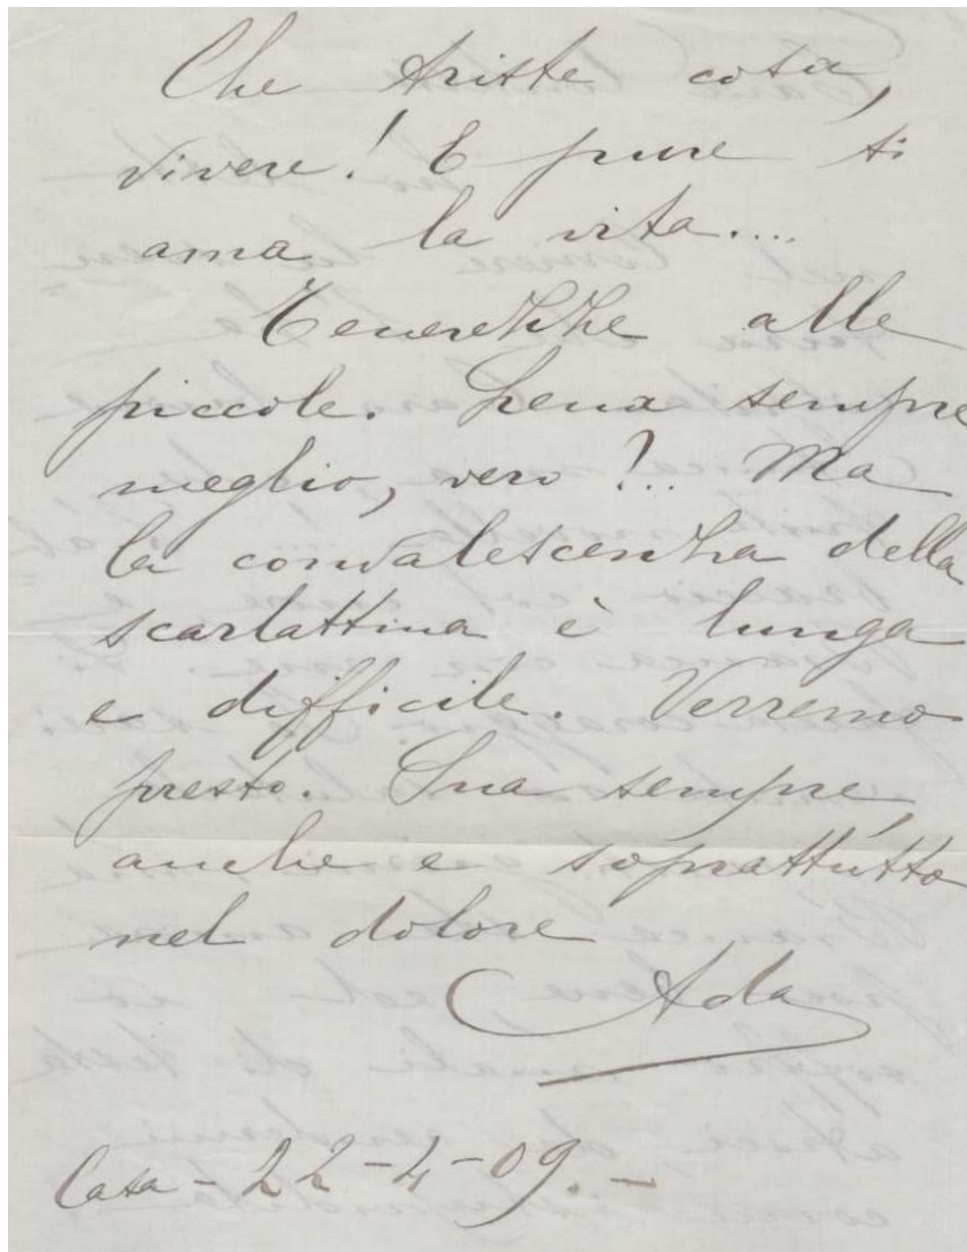 Che triste cosa,
vivere! E pure si
ama la vita....
Tenerezze alle
piccole. Lena sempre
meglio, vero?... Ma
la convalescenza della
scarlattina è lunga
e difficile. Verremo
presto. Sua sempre,
anche e soprattutto
nel dolore
Ada
Casa - 22-4-09.-